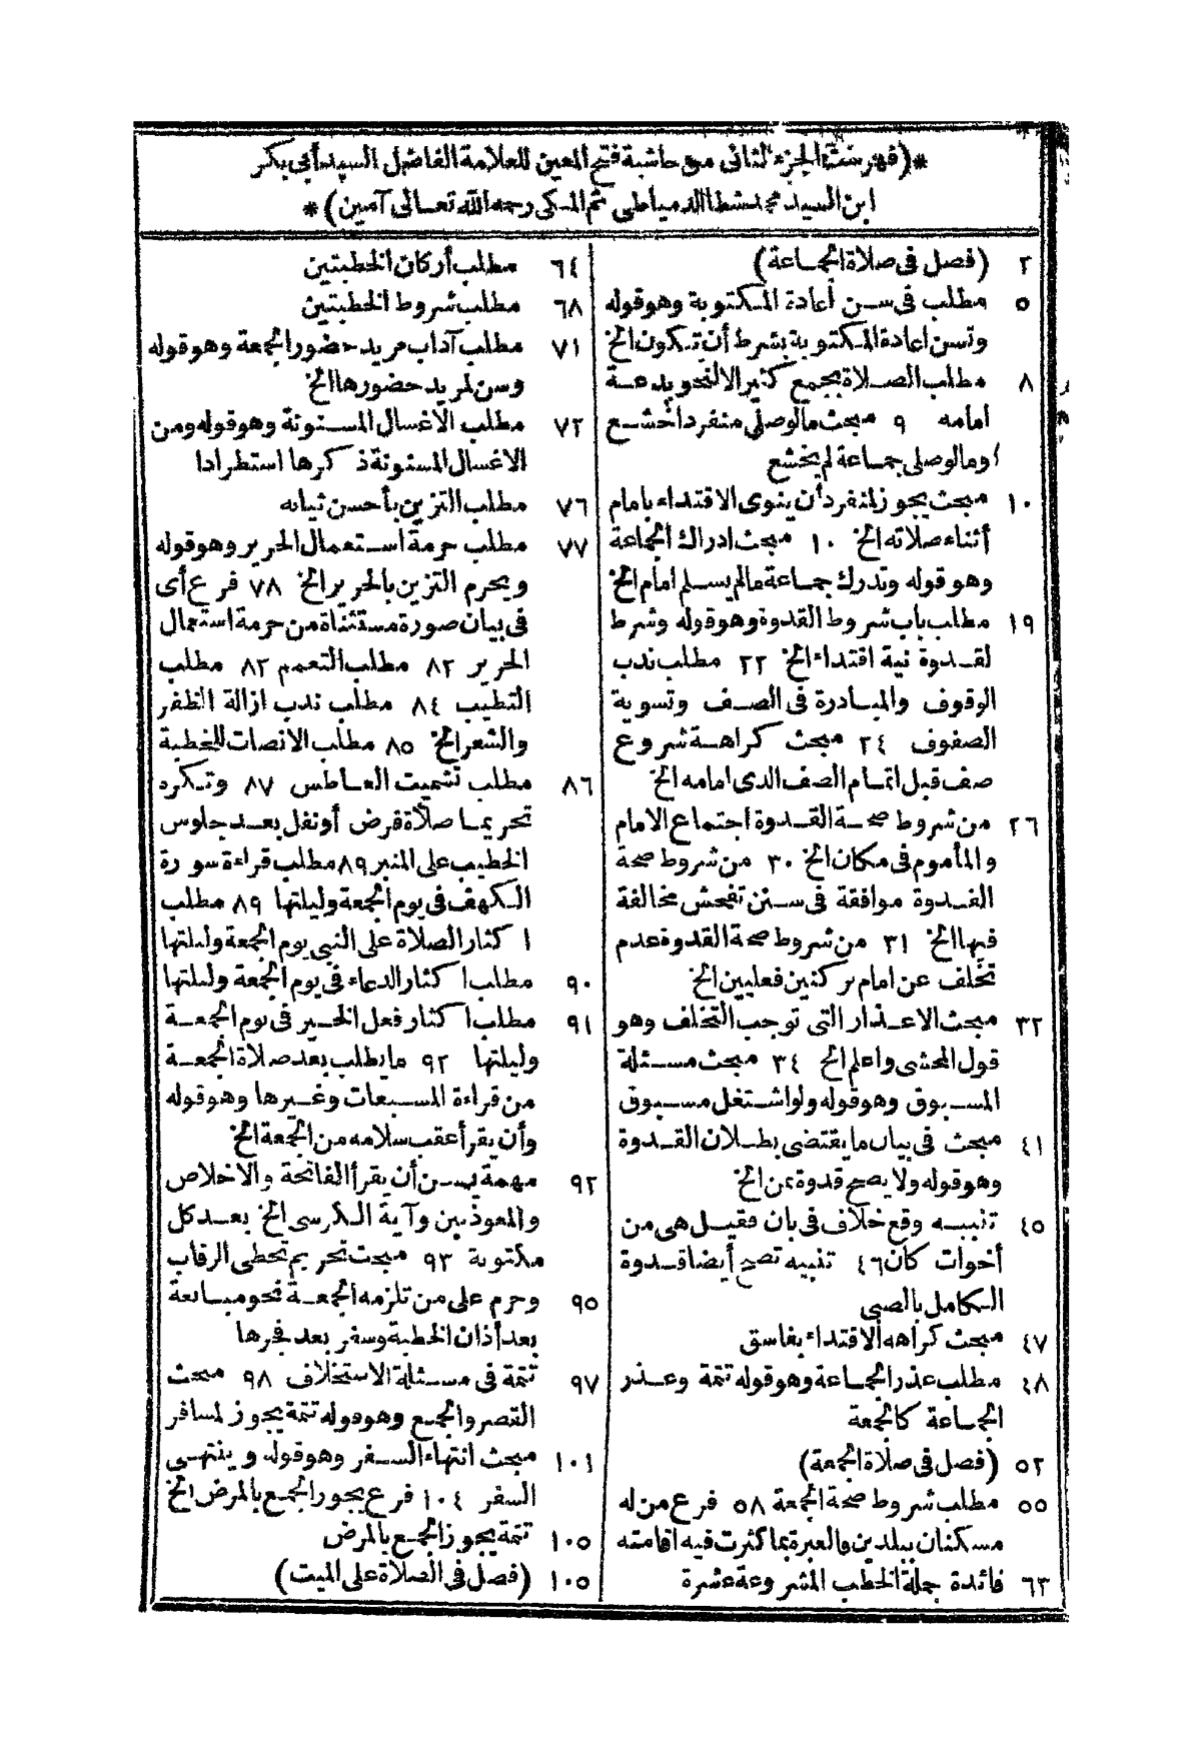 *(فهرست الجزء الثانى من حاشية فتح المعين للعلامة الفاضل السيد أبى بكر
ابن السيد محمد شطا الدمياطى ثم المكى رحمه الله تعالى آمين)*
٢ (فصل فى صلاة الجماعة)
٥ مطلب فى سن أعادة المكتوبة وهو قوله
وتسن اعادة المكتوبة بشرط أن تكون الخ
٨ مطلب الصلاة بجمع كثير الا لنحو بدعة
امامه ٩ مبحث ما لو صلى منفردا خشع
وما لو صلى جماعة لم يخشع
١٠ مبحث يجوز لمنفرد أن ينوى الاقتداء بامام
أثناء صلاته الخ ١٠ مبحث ادراك الجماعة
وهو قوله وتدرك جماعة ما لم يسلم امام الخ
١٩ مطلب باب شروط القدوة وهو قوله وشرط
لقدوة نية اقتداء الخ ٢٢ مطلب ندب
الوقوف والمبادرة فى الصف وتسوية
الصفوف ٢٤ مبحث كراهة شروع
صف قبل اتمام الصف الذى امامه الخ
٢٦ من شروط صحة القدوة اجتماع الامام
والمأموم فى مكان الخ ٣٠ من شروط صحة
القدوة موافقة فى سنن تفحش مخالفة
فيها الخ ٣١ من شروط صحة القدوة عدم
تخلف عن امام بركنين فعليين الخ
٣٢ مبحث الاعذار التى توجب التخلف وهو
قول المحشى واعلم الخ ٣٤ مبحث مسئلة
المسبوق وهو قوله ولو اشتغل مسبوق
٤١ مبحث فى بيان ما يقتضى بطلان القدوة
وهو قوله ولا يصح قدوة بمن الخ
٤٥ تنبيه وقع خلاف فى بان فقيل هى من
أخوات كان ٤٦ تنبيه تصح أيضا قدوة
الكامل بالصبى
٤٧ مبحث كراهه الاقتداء بفاسق
٤٨ مطلب عذر الجماعة وهو قوله تتمة وعذر
الجماعة كالجمعة
٥٢ (فصل فى صلاة الجمعة)
٥٥ مطلب شروط صحة الجمعة ٥٨ فرع من له
مسكنان ببلدين فالعبرة بما كثرت فيه اقامته
٦٣ فائدة جملة الخطب المشروعة عشرة
٦٤ مطلب أركان الخطبتين
٦٨ مطلب شروط الخطبتين
٧١ مطلب آداب مريد حضور الجمعة وهو قوله
وسن لمريد حضورها الخ
٧٢ مطلب الاغسال المسنونة وهو قوله ومن
الاغسال المسنونة ذكرها استطرادا
٧٦ مطلب التزين بأحسن ثيابه
٧٧ مطلب حرمة استعمال الحرير وهو قوله
ويحرم التزين بالحرير الخ ٧٨ فرع أى
فى بيان صورة مستثناة من حرمة استعمال
الحرير ٨٢ مطلب التعمم ٨٢ مطلب
التطيب ٨٤ مطلب ندب ازالة الظفر
والشعر الخ ٨٥ مطلب الانصات للخطبة
٨٦ مطلب تشميت العاطس ٨٧ وتكره
تحريما صلاة فرض أو نفل بعد جلوس
الخطيب على المنبر ٨٩ مطلب قراءة سورة
الكهف فى يوم الجمعة وليلتها ٨٩ مطلب
اكثار الصلاة على النبى يوم الجمعة وليلتها
٩٠ مطلب اكثار الدعاء فى يوم الجمعة وليلتها
٩١ مطلب اكثار فعل الخير فى يوم الجمعة
وليلتها ٩٢ ما يطلب بعد صلاة الجمعة
من قراءة المسبعات وغيرها وهو قوله
وأن يقرأ عقب سلامه من الجمعة الخ
٩٢ مهمة يسن أن يقرأ الفاتحة والاخلاص
والمعوذتين وآية الكرسى الخ بعد كل
مكتوبة ٩٣ مبحث تحريم تخطى الرقاب
٩٥ وحرم على من تلزمه الجمعة نحو مبايعة
بعد أذان الخطبة وسفر بعد فجرها
٩٧ تتمة فى مسئلة الاستخلاف ٩٨ مبحث
القصر والجمع وهو قوله تتمة يجوز لمسافر
١٠١ مبحث انتهاء السفر وهو قوله وينتهى
السفر ١٠٤ فرع يجوز الجمع بالمرض الخ
١٠٥ تتمة يجوز الجمع بالمرض
١٠٥ (فصل فى الصلاة على الميت)